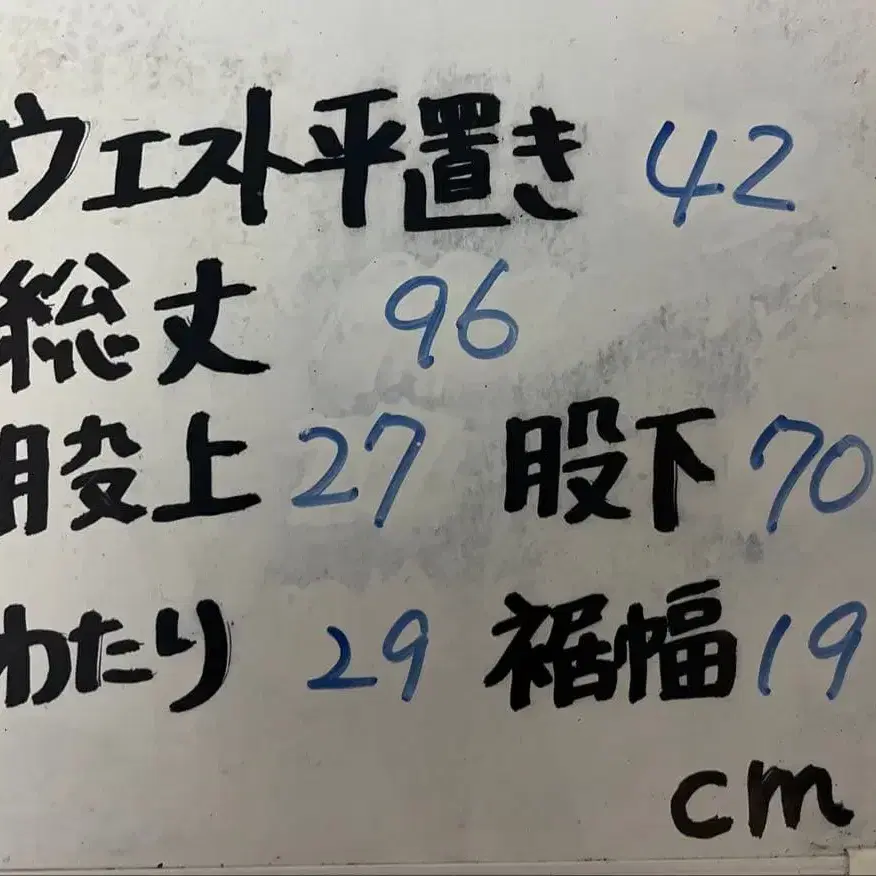 ウエスト平置き 42
総丈 96
股上 27 股下 70
わたり 29 裾幅 19
cm